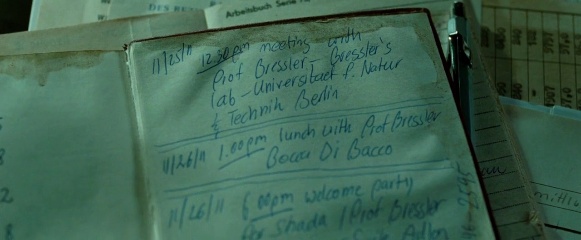 Arbeitsbuch Serie
11/25/11 12.30pm meeting with
Prof Bressler - Bressler's
lab - Universitaet f. Natur
& Technik Berlin
11/26/11 1.00pm lunch with Prof Bressler
Bocca Di Bacco
11/26/11 6.00pm welcome party
Per Shada / Prof Bressler
Adlon